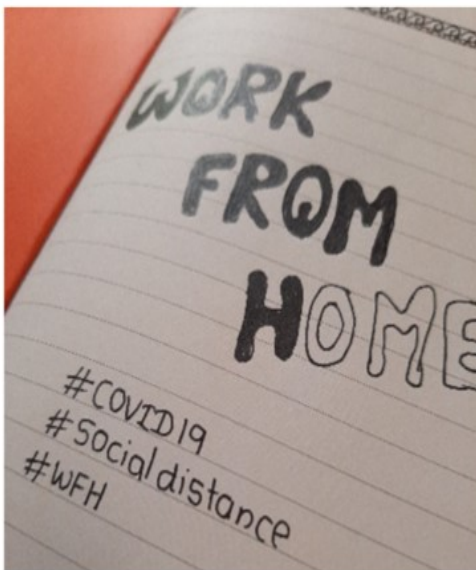 WORK
FROM
HOME
#COVID19
#Socialdistance
#WFH